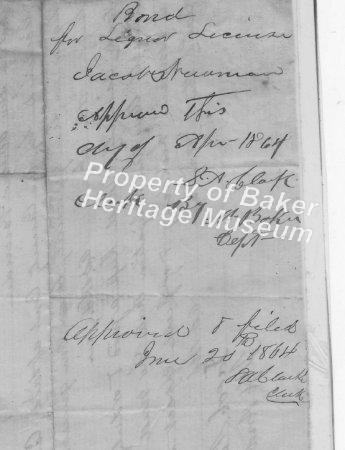 Bond
for Liquor License
Jacob Newman
Approved This
day of Apr 1864
S. A. Clark
Clerk By Baker
Dept
Property of Baker
Heritage Museum
Approved & filed
June 20 1864
S A Clark
Clerk